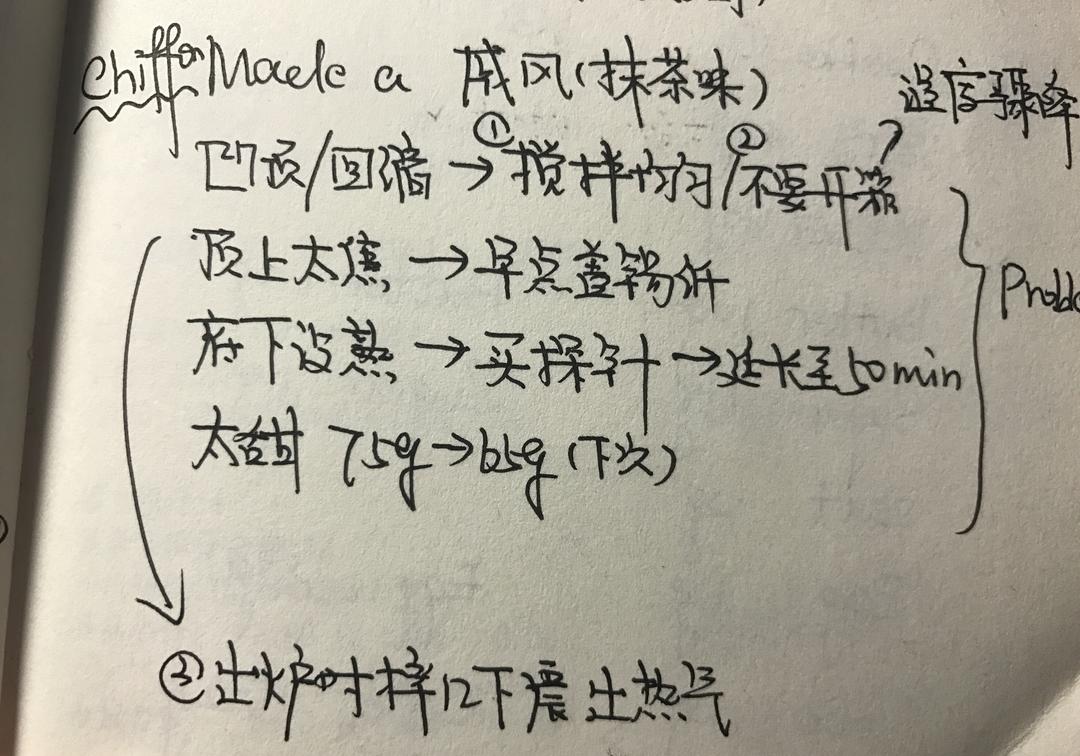 chiffon Made a 威风(抹茶味)
温度骤降
凹顶/回缩 → ①搅拌均匀/②不要开箱
顶上太焦 → 早点盖锡纸
底下没熟 → 买探针 → 延长至50min
太甜 75g → 65g (下次)
③出炉时摔12下震出热气